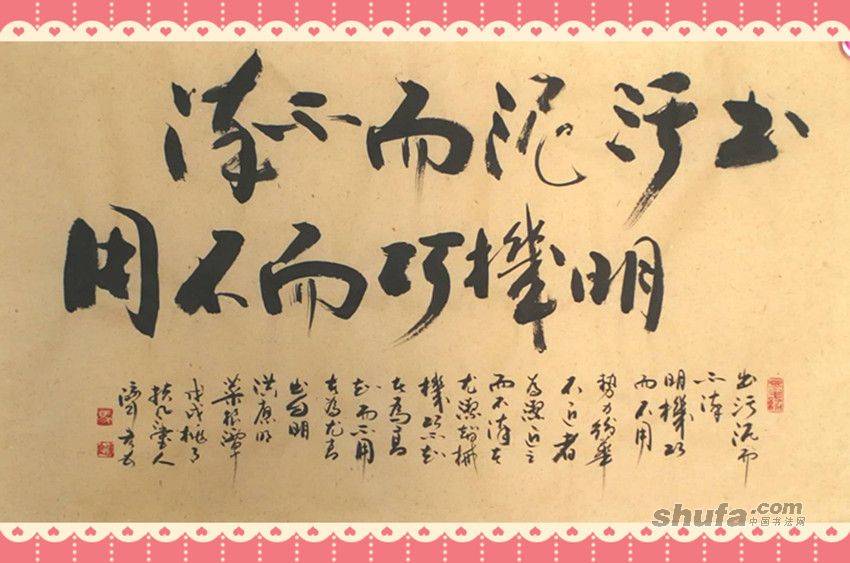 出污泥而不染
明機巧而不用
出污泥而
不染
明機巧
而不用
勢力紛華
不近者
為潔近之
而不染者
尤潔智械
機巧不知
者為高
知而不用
者為尤高
出自明
洪應明
菜根譚
戊戌桃月
shufa.com
中国书法网